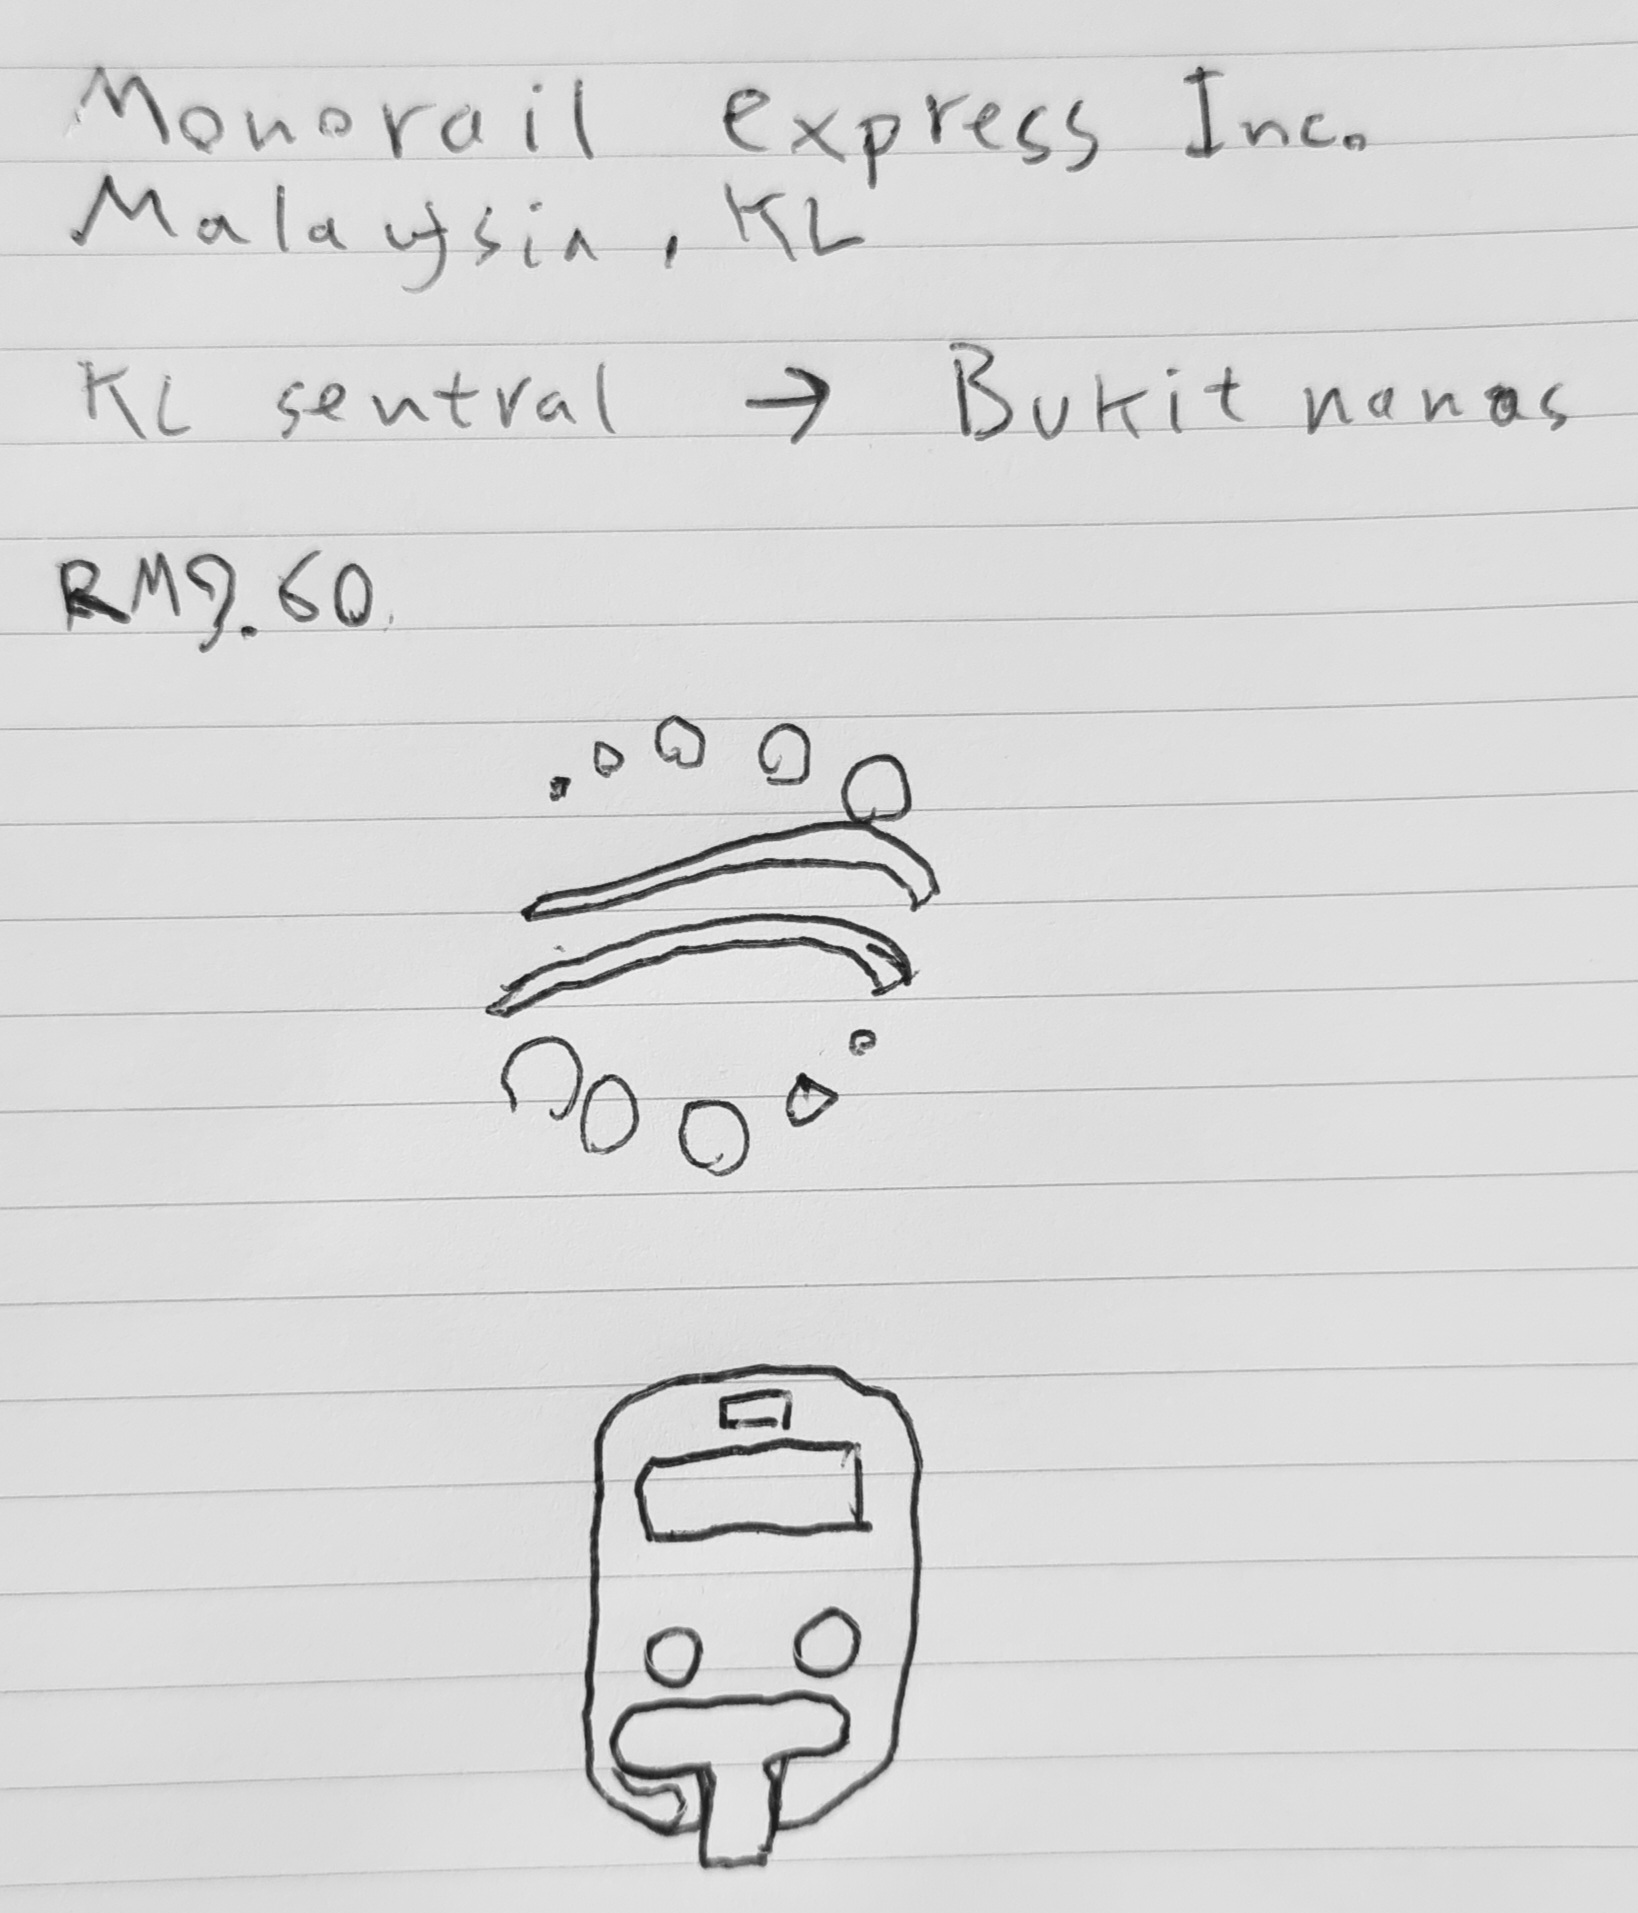 Monorail express Inc.
Malaysia, KL
KL sentral → Bukit nanas
RM9.60